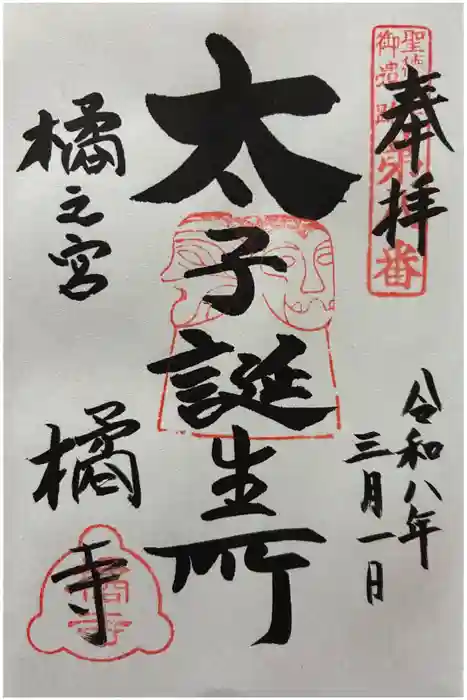 奉拝
聖徳
御遺跡第八番
令和八年
三月一日
太子誕生所
橘之宮
橘寺
橘寺